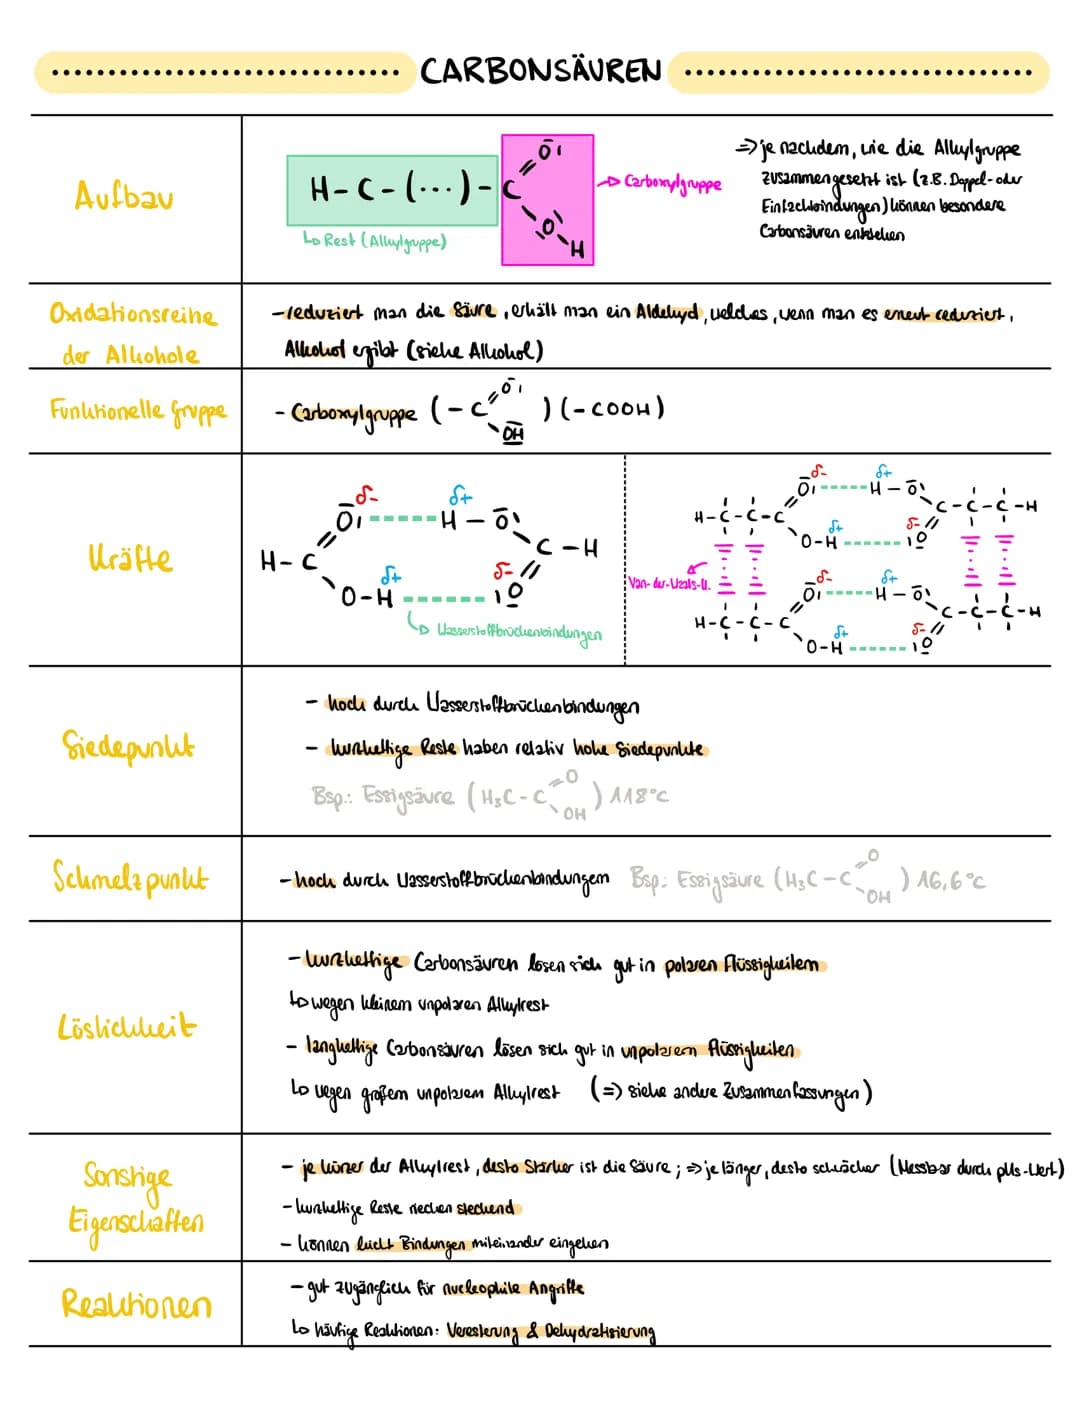 CARBONSÄUREN
Aufbau
H-C-(...)-C
O
O
H
↳ Rest (Alkylgruppe)
→ Carboxylgruppe
⇒ je nachdem, wie die Alkylgruppe
zusammengesetzt ist (z.B. Doppel- oder
Einfachbindungen) können besondere
Carbonsäuren entstehen
Oxidationsreihe
der Alkohole
- reduziert man die Säure, erhält man ein Aldehyd, welches, wenn man es erneut reduziert,
Alkohol ergibt (siehe Alkohol)
Funktionelle Gruppe
- Carboxylgruppe (-C O OH) (-COOH)
Kräfte
δ- δ+
O H-O
H-C C-H
δ+ δ-
O-H O
↳ Wasserstoffbrückenbindungen
δ- δ+
O H-O
H-C-C-C C-C-C-H
δ+ δ-
O-H O
Van-der-Waals-K.
δ- δ+
O H-O
H-C-C-C C-C-C-H
δ+ δ-
O-H O
Siedepunkt
- hoch durch Wasserstoffbrückenbindungen
- kurzkettige Reste haben relativ hohe Siedepunkte
Bsp.: Essigsäure (H₃C-C O OH) 118°C
Schmelzpunkt
- hoch durch Wasserstoffbrückenbindungem Bsp: Essigsäure (H₃C-C O OH) 16,6°C
Löslichkeit
- kurzkettige Carbonsäuren lösen sich gut in polaren Flüssigkeiten
↳ wegen kleinem unpolaren Alkylrest
- langkettige Carbonsäuren lösen sich gut in unpolaren Flüssigkeiten
↳ wegen großem unpolarem Alkylrest (⇒ siehe andere Zusammenfassungen)
Sonstige
Eigenschaften
- je kürzer der Alkylrest, desto stärker ist die Säure; ⇒ je länger, desto schwächer (Messbar durch pKs-Wert)
- kurzkettige Reste riechen stechend
- können leicht Bindungen miteinander eingehen
Reaktionen
- gut zugänglich für nucleophile Angriffe
↳ häufige Reaktionen: Veresterung & Dehydratisierung